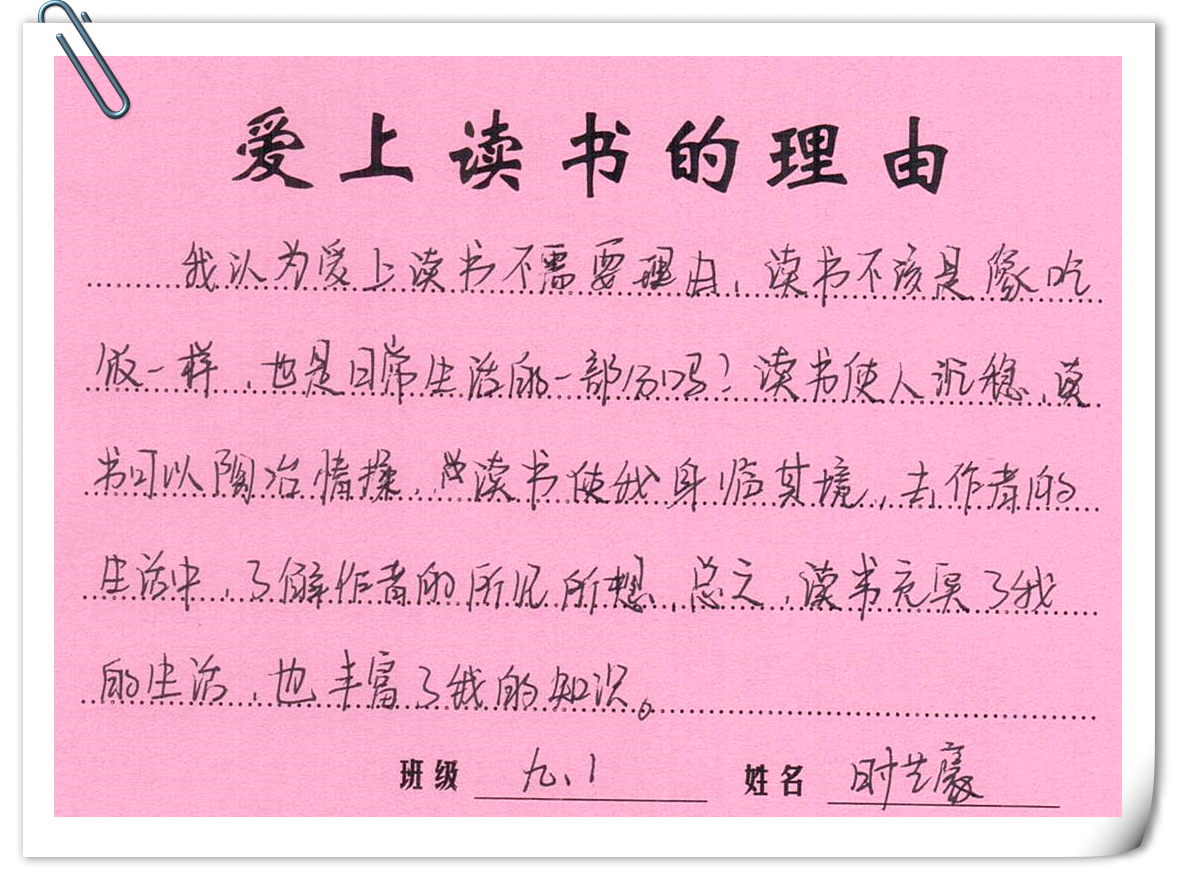 爱上读书的理由
我认为爱上读书不需要理由，读书不该是像吃
饭一样，也是日常生活的一部分吗？读书使人沉稳，读
书可以陶冶情操，读书使我身临其境，去作者的
生活中，了解作者的所见所想，总之，读书充实了我
的生活，也丰富了我的知识。
班级 九、1 姓名 时